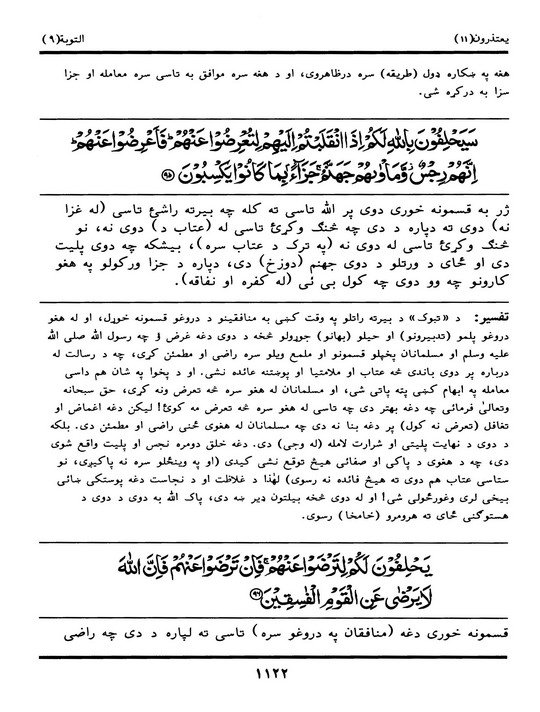 یعتذرون(۱۱) التوبة(۹)
هغه په ښکاره ډول (طریقه) سره درظاهروی، او د هغه سره موافق به تاسی سره معامله او جزا
سزا به درکړه شی.
سَيَحْلِفُوْنَ بِاللّٰهِ لَكُمْ اِذَا انْقَلَبْتُمْ اِلَيْهِمْ لِتُعْرِضُوْا عَنْهُمْ ۖ فَاَعْرِضُوْا عَنْهُمْ ۖ
اِنَّهُمْ رِجْسٌ ۫ وَّمَاْوٰىهُمْ جَهَنَّمُ ۚ جَزَآءًۢ بِمَا كَانُوْا يَكْسِبُوْنَ ﴿۹۵﴾
ژر به قسمونه خوری دوی پر الله تاسی ته کله چه بیرته راشئ تاسی (له غزا
نه) دوی ته دپاره د دی چه څنګ وکړئ تاسی له (عتاب د) دوی نه، نو
څنګ وکړئ تاسی له دوی نه (په ترک د عتاب سره)، بیشکه چه دوی پلیت
دی او ځای د ورتلو د دوی جهنم (دوزخ) دی، دپاره د جزا ورکولو په هغو
کارونو چه وو دوی چه کول یی ئی (له کفره او نفاقه).
تفسیر: د «تبوک» د بیرته راتلو په وقت کښی به منافقینو د دروغو قسمونه خوړل، او له هغو
دروغو پلمو (تدبیرونو) او حیلو (بهانو) جوړولو څخه د دوی دغه غرض ؤ چه رسول الله صلی الله
علیه وسلم او مسلمانان پخپلو قسمونو او ملمع ویلو سره راضی او مطمئن کړی، چه د رسالت له
درباره پر دوی باندی څه عتاب او ملامتیا او پوښتنه عائده نشی. او د پخوا په شان هم داسی
معامله په ابهام کښی پته پاتی شی، او مسلمانان له هغو سره څه تعرض ونه کړی، حق سبحانه
وتعالیٰ فرمائی چه دغه بهتر دی چه تاسی له هغو سره څه تعرض مه کوئ! لیکن دغه اغماض او
تغافل (تعرض نه کول) پر دغه بنا نه دی چه مسلمانان له هغوی ځنی راضی او مطمئن دی. بلکه
د دوی د نهایت پلیتی او شرارت لامله (له وجی) دی. دغه خلق دومره نجس او پلیت واقع شوی
دی، چه د هغوی د پاکی او صفائی هیڅ توقع نشی کیدی (او په وینځلو سره نه پاکیږی، نو
ستاسی عتاب هم دوی ته هیڅ فائده نه رسوی) لهٰذا د غلاظت او د نجاست دغه پوستکی ښائی
بیخی لری وغورځولی شی! او له دوی څخه بیلتون ډیر ښه دی، پاک الله به دوی د دوی د
هستوګنی ځای ته هرومرو (خامخا) رسوی.
يَحْلِفُوْنَ لَكُمْ لِتَرْضَوْا عَنْهُمْ ۚ فَاِنْ تَرْضَوْا عَنْهُمْ فَاِنَّ اللّٰهَ
لَا يَرْضٰى عَنِ الْقَوْمِ الْفٰسِقِيْنَ ﴿۹۶﴾
قسمونه خوری دغه (منافقان په دروغو سره) تاسی ته لپاره د دی چه راضی
۱۱۲۲